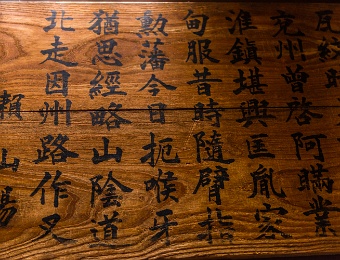 瓦紋時
兗州曾啓阿瞞業
淮鎮堪興匡胤家
甸服昔時隨臂指
勲藩今日扼喉牙
猶思經略山陰道
北走因州路作叉
頼山陽